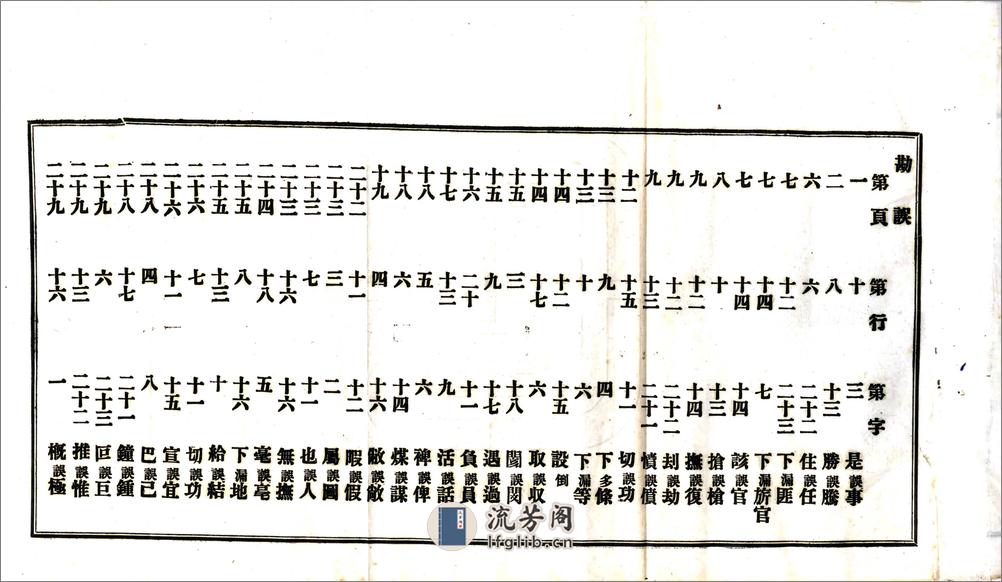 勘誤
第頁 第行 第字
一 十 三 是誤事
二 八 十三 勝誤騰
六 六 二十二 住誤任
七 十二 二十三 下漏匪
七 十四 七 下漏旂官
七 十四 十四 該誤官
八 十 十三 搶誤槍
九 十二 十四 撫誤復
九 十二 二十二 刦誤劫
九 十三 二十一 憤誤僨
十二 十五 十一 切誤功
十三 九 四 下多條
十三 十 六 下漏等
十四 十二 十五 設倒
十四 十七 六 取誤収
十五 三 十八 閩誤閔
十五 九 十七 遇誤過
十六 二十 十一 負誤員
十七 十三 九 活誤話
十八 五 六 稗誤俾
十八 六 十四 煤誤謀
十九 四 十六 敝誤敵
二十二 十一 十二 暇誤假
二十三 三 二 屬誤圖
二十三 七 十一 也誤人
二十三 十六 十六 無誤撫
二十四 十八 五 毫誤亳
二十五 八 十六 下漏地
二十五 十三 十 給誤結
二十六 七 十一 切誤功
二十六 十一 十五 宣誤宜
二十八 四 八 巴誤已
二十八 十七 二十一 鐘誤鍾
二十九 六 二十三 叵誤巨
二十九 十三 二十二 推誤惟
二十九 十六 一 概誤極
流芳阁
lfglib.cn